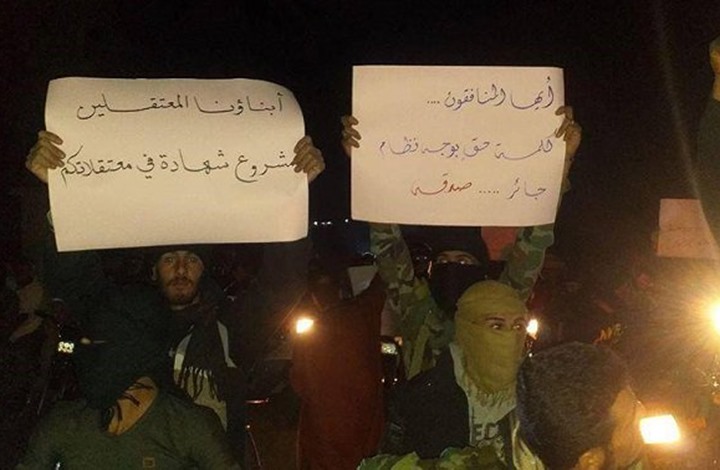 أيها المنافقون ....
كلمة حق بوجه نظام
جائر ..... صدقة
أبناؤنا المعتقلين
مشروع شهادة في معتقلاتكم